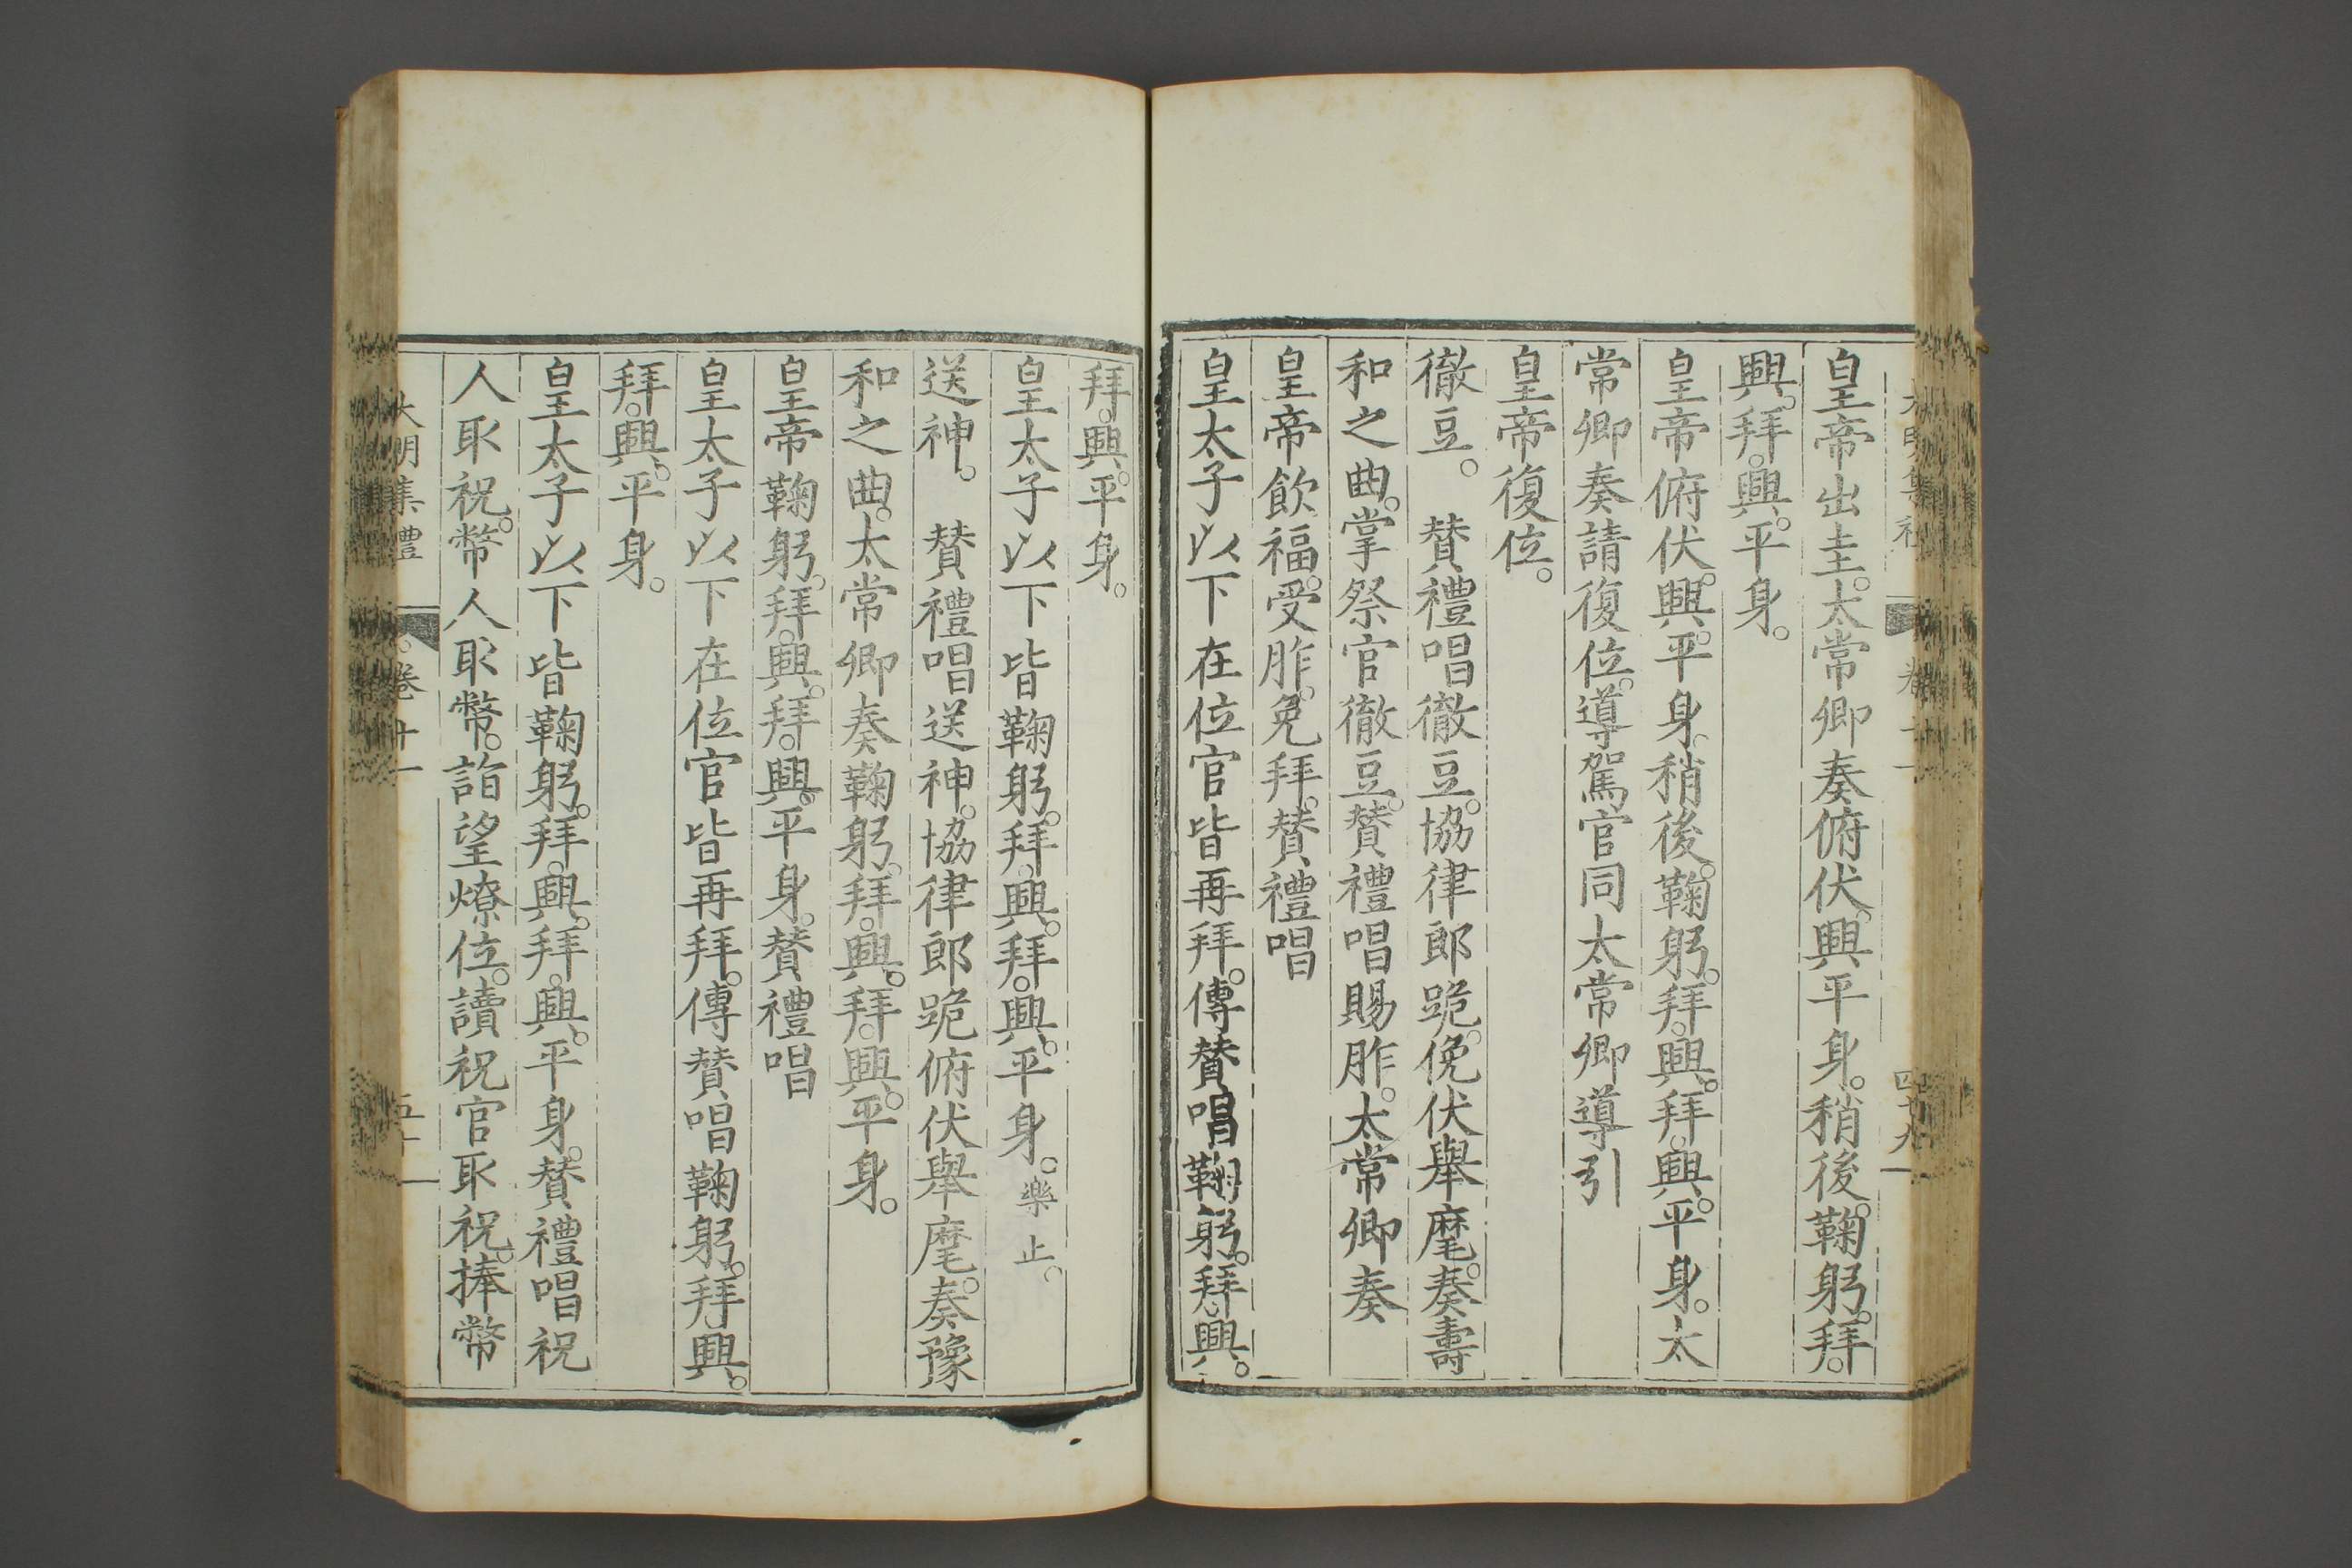 皇帝出圭。太常卿奏俯伏。興平身。稍後。鞠躬。拜。
興。拜。興。平身。
皇帝俯伏。興。平身。稍後。鞠躬。拜。興。拜。興。平身。太
常卿奏請復位。導駕官同太常卿導引
皇帝復位。
徹豆。　贊禮唱徹豆。協律郎跪。俛伏舉麾。奏壽
和之曲。掌祭官徹豆。贊禮唱賜胙。太常卿奏
皇帝飲福。受胙。免拜。贊禮唱
皇太子以下在位官皆再拜。傳贊唱鞠躬。拜。興。
拜。興。平身。
皇太子以下皆鞠躬。拜。興。拜。興。平身。樂止。
送神。　贊禮唱送神。協律郎跪俯伏舉麾。奏豫
和之曲。太常卿奏鞠躬。拜。興。拜。興。平身。
皇帝鞠躬。拜。興。拜。興。平身。贊禮唱
皇太子以下在位官皆再拜。傳贊唱鞠躬。拜。興。
拜。興。平身。
皇太子以下皆鞠躬。拜。興。拜。興。平身。贊禮唱祝
人取祝。幣人取幣。詣望燎位。讀祝官取祝。捧幣
大明集禮　卷十一